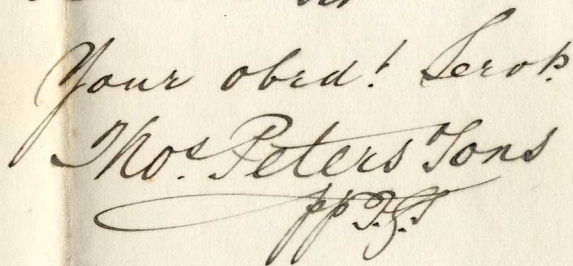 Your obedt Servts
Thos. Peters Sons
pp